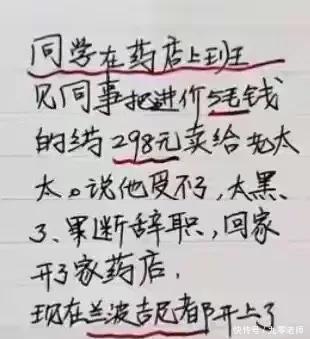 同学在药店上班
见同事把进价5毛钱
的药298元卖给老太
太。说他受不了,太黑、
了、果断辞职,回家
开了家药店,
现在兰波吉尼都开上了
快传号/九零老师